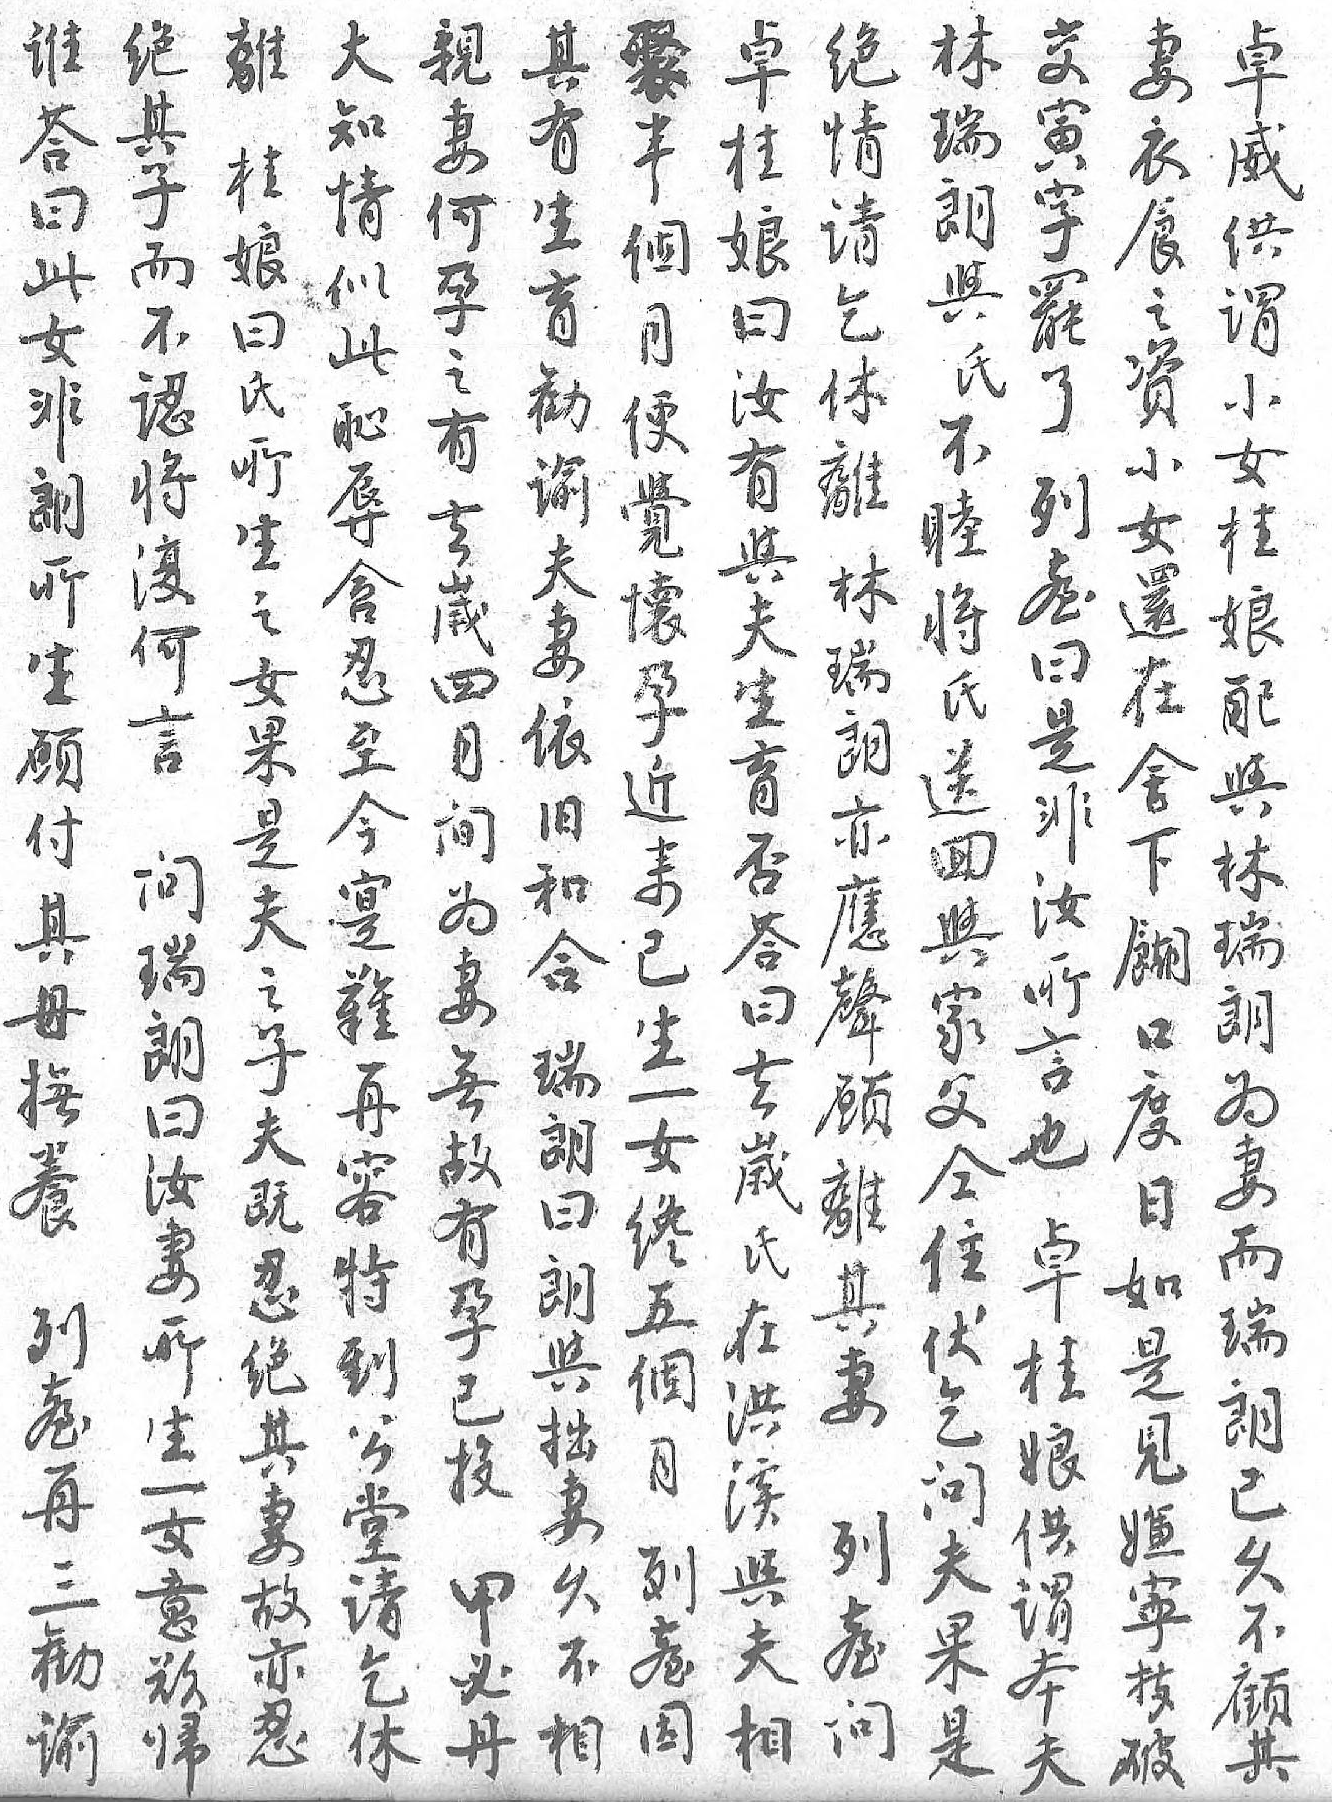 卓威供謂小女桂娘配與林瑞朗為妻而瑞朗已久不顧其
妻衣食之資小女還在舍下餬口度日如是見嫌寧扙破
交寅字罷了 列䑓曰是非汝所言也 卓桂娘供謂本夫
林瑞朗與氏不睦將氏送回與家父仝住伏乞问夫果是
绝情请乞休離 林瑞朗亦應聲願離其妻 列䑓问
卓桂娘曰汝有與夫生育否荅曰去歲氏在洪溪與夫相
聚半個月便覺懷孕近来已生一女纔五個月 列䑓因
其有生育勸谕夫妻依旧和合 瑞朗曰朗與拙妻久不相
親妻何孕之有去歲四月间为妻無故有孕已投 甲必丹
大知情似此恥辱含忍至今寔難再容特到公堂请乞休
離 桂娘曰氏所生之女果是夫之子夫既忍绝其妻故亦忍
绝其子而不認将復何言 问瑞朗曰汝妻所生一女意欲歸
谁荅曰此女非朗所生願付其母撫養 列䑓再三勸谕